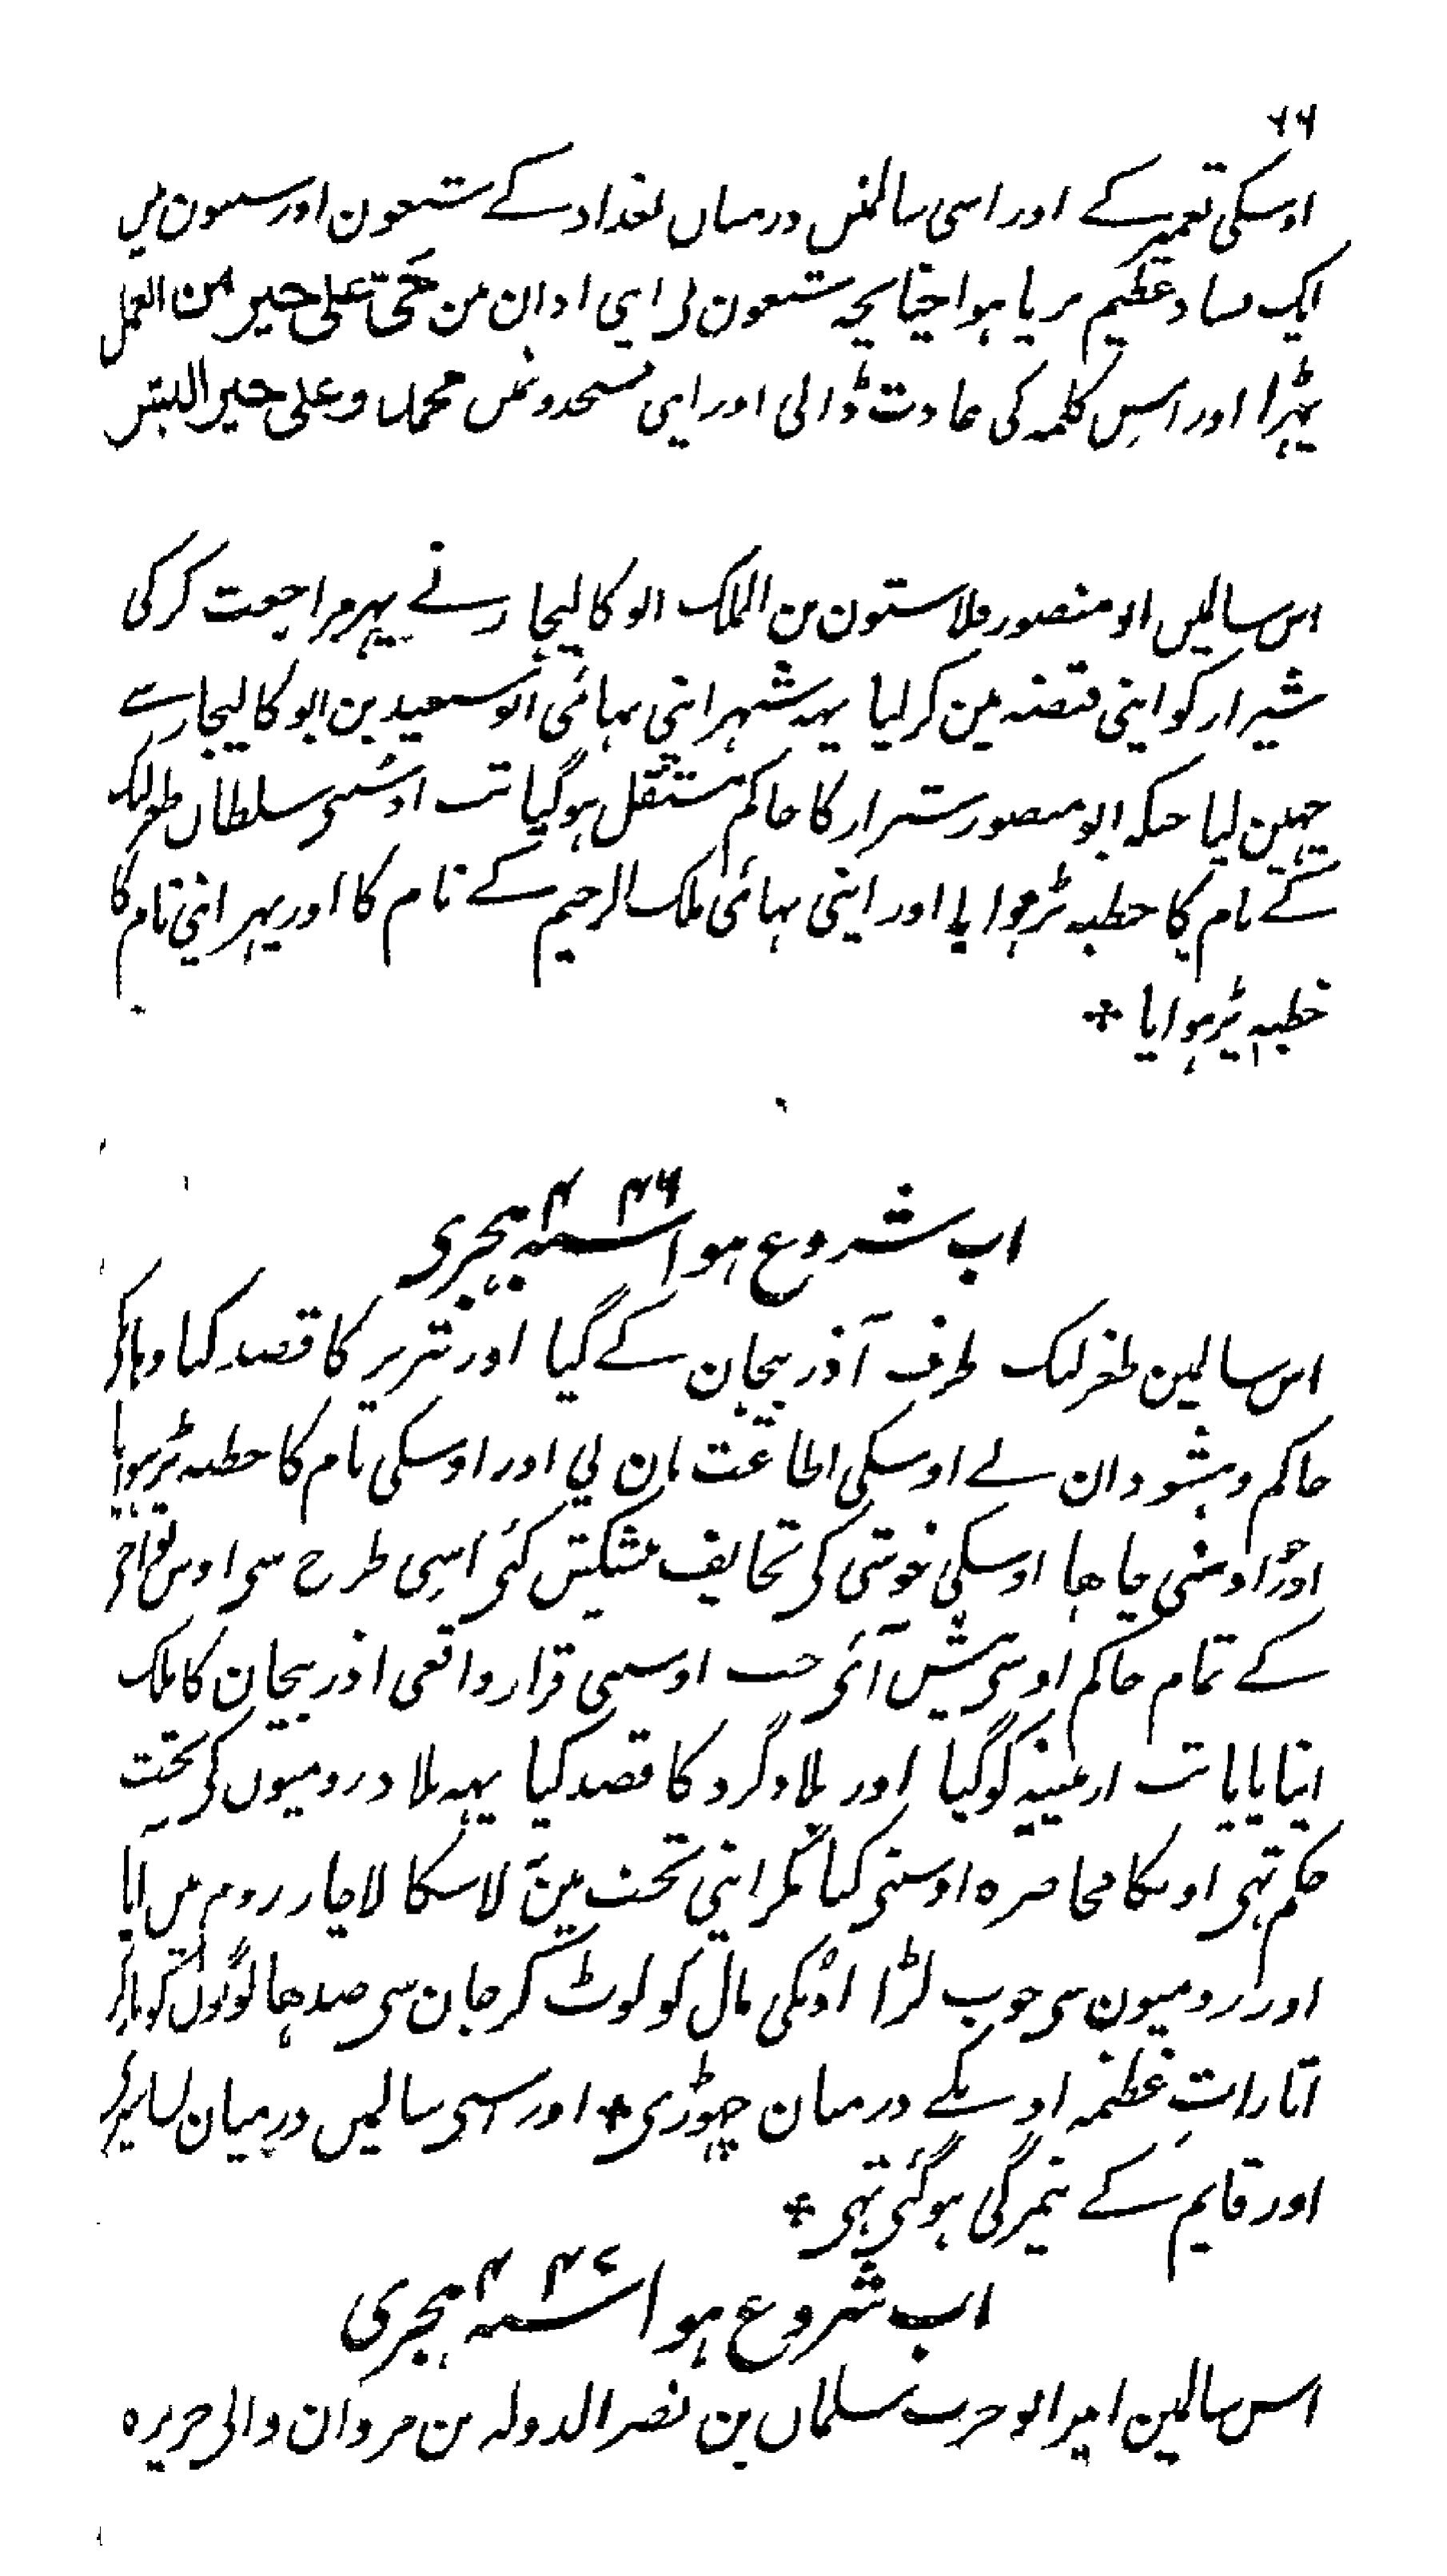 ۶۶
اوسکی تعمیر کے اور اسی سالمیں درمیاں بغداد کے شیعون اور سنیون میں
ایک فساد عظیم برپا ہوا چنانچہ شیعون نی اپنی اذان من حَی علی خیر من العمل
پہرا اور اسِ کلمہ کی عادت ڈالی اور اپنی مسجدونمیں محمد وعلی خیر البشر
اس سالمیں ابو منصور فلاستون بن الملک ابو کالیجار نے پہر مراجعت کر کی
شیراز کو اپنی قبضہ مین کر لیا یہہ شہر اپنی بہائی ابو سعید بن ابو کالیجار سے
چہین لیا جبکہ ابو منصور شیراز کا حاکم مستقل ہو گیا تب اوسنی سلطاں طغرلبک
کے نام کا خطبہ پڑھوایا اور اپنی بہائی ملک الرحیم کے نام کا اور پہر اپنی نام کا
خطبہ پڑہوایا ❊
اب شروع ہوا سنہ ۴۴۶ ہجری
اس سالمین طغرلبک طرف آذربیجان کے گیا اور تبریز کا قصد کیا وہانکی
حاکم وہشودان نے اوسکی اطاعت مان لی اور اوسکی نام کا خطبہ پڑہوایا
اور اوسنی چاہا اوسکی خوشی کی تحایف پیشکش کئی اسِی طرح سی اوس نواحی
کے تمام حاکم اوسی پیش آئی جب اوسنی قرار واقعی اذربیجان کا ملک
اپنا پایا تب ارمینیہ کو گیا اور بلاد گرد کا قصد کیا یہہ بلاد رومیوں کی تحت
حکم تہی اوسکا محاصرہ اوسنی کیا مگر اپنی تحت مین نہ لا سکا لاچار روم میں آیا
اور رومیون سی خوب لڑا اونکی مال کو لوٹ کر جان سی صدھا لوگوں کو مار کر
اثاراتِ عظیمہ اوسکے درمیان چہوڑی ❊ اور اسی سالمیں درمیان بساسیری
اور قایم کے تیرگی ہو گئی تہی ❊
اب شروع ہوا سنہ ۴۴۷ ہجری
اس سالمین امیر ابو حرب سلیماں بن نصر الدولہ بن مروان والی جزیرہ